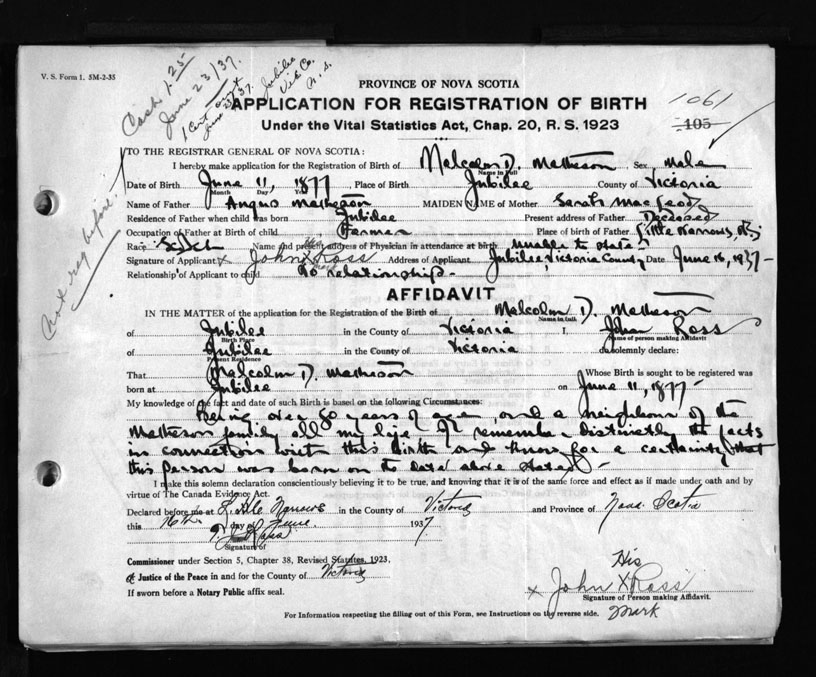 V. S. Form 1. 5M-2-35
Cash 1.25
June 23/37.
1 Cert
Jubilee
Vic Co.
N. S.
PROVINCE OF NOVA SCOTIA
APPLICATION FOR REGISTRATION OF BIRTH
1061
105
Under the Vital Statistics Act, Chap. 20, R. S. 1923
TO THE REGISTRAR GENERAL OF NOVA SCOTIA:
I hereby make application for the Registration of Birth of Malcolm D. Matheson Sex Male
Name in full
Date of Birth June 11, 1877 Place of Birth Jubilee County of Victoria
Month Day Year
Name of Father Angus Matheson MAIDEN NAME of Mother Sarah MacLeod
Residence of Father when child was born Jubilee Present address of Father Deceased
Occupation of Father at Birth of child Farmer Place of birth of Father Little Narrows, N.S.
Race Scotch Name and present address of Physician in attendance at birth Unable to state
Signature of Applicant x John X Ross Address of Applicant Jubilee, Victoria County Date June 16, 1937-
His
mark
Relationship of Applicant to child No relationship-
Not reg before.
AFFIDAVIT
IN THE MATTER of the application for the Registration of the Birth of Malcolm D. Matheson
Name in full
of Jubilee in the County of Victoria I, John Ross
Birth Place Name of person making Affidavit
of Jubilee in the County of Victoria do solemnly declare:
Present Residence
That Malcolm D. Matheson Whose Birth is sought to be registered was
born at Jubilee on June 11, 1877-
My knowledge of the fact and date of such Birth is based on the following Circumstances:
Being over 80 years of age, and a neighbour of the
Matheson family all my life. I remember distinctly the facts
in connection with this birth and know for a certainity that
this person was born on the date above stated.-
I make this solemn declaration conscientiously believing it to be true, and knowing that it is of the same force and effect as if made under oath and by
virtue of The Canada Evidence Act.
Declared before me at Little Narrows in the County of Victoria and Province of Nova Scotia
this 16th day of June 1937.
Ross
Signature of
Commissioner under Section 5, Chapter 38, Revised Statutes, 1923,
A Justice of the Peace in and for the County of Victoria
If sworn before a Notary Public affix seal.
His
x John X Ross
Signature of Person making Affidavit.
Mark
For Information respecting the filling out of this Form, see Instructions on the reverse side.